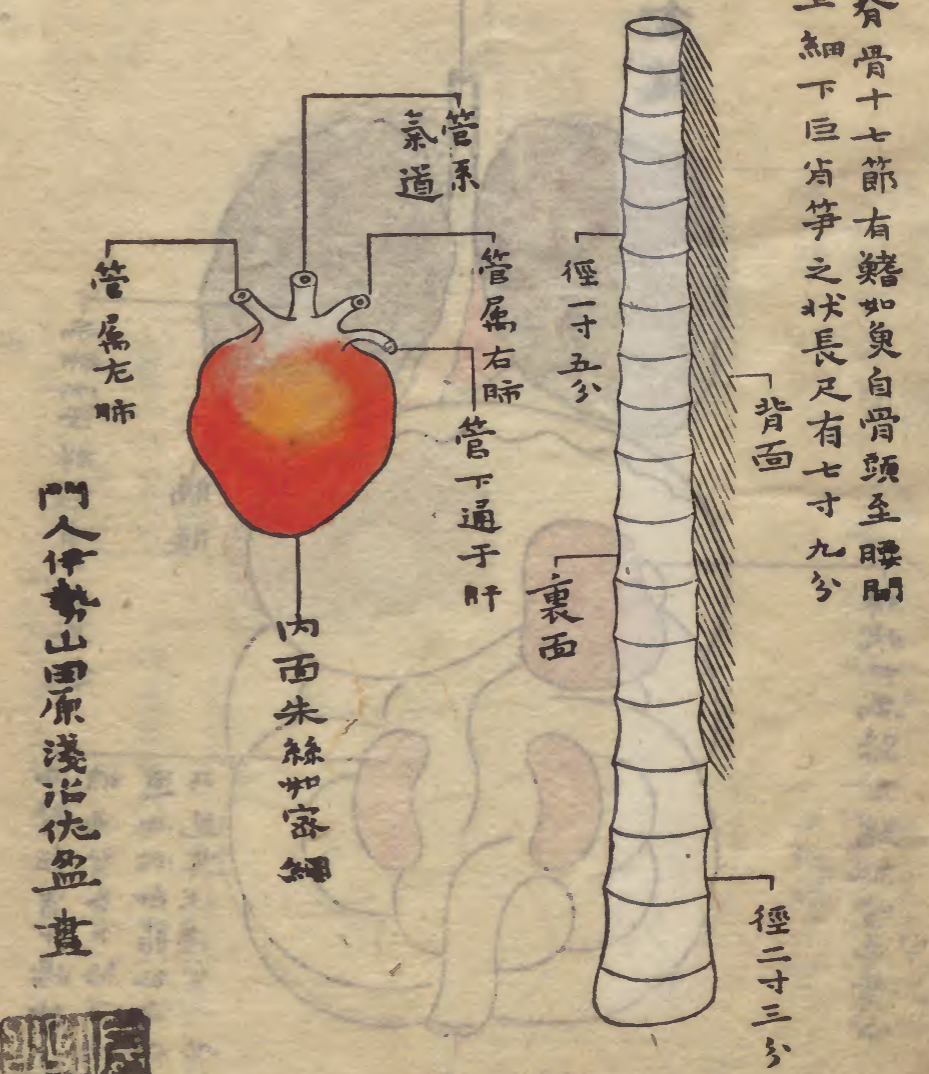 脊骨十七節有鰭如魚自骨頭至腰間
上細下巨肖笋之状長尺有七寸九分
背面
徑二寸三分
徑一寸五分
裏面
管系
氣道
管属右肺
管下通于肝
管属左肺
内面朱絲如密網
門人伊勢山田原淺沼佐盈畫